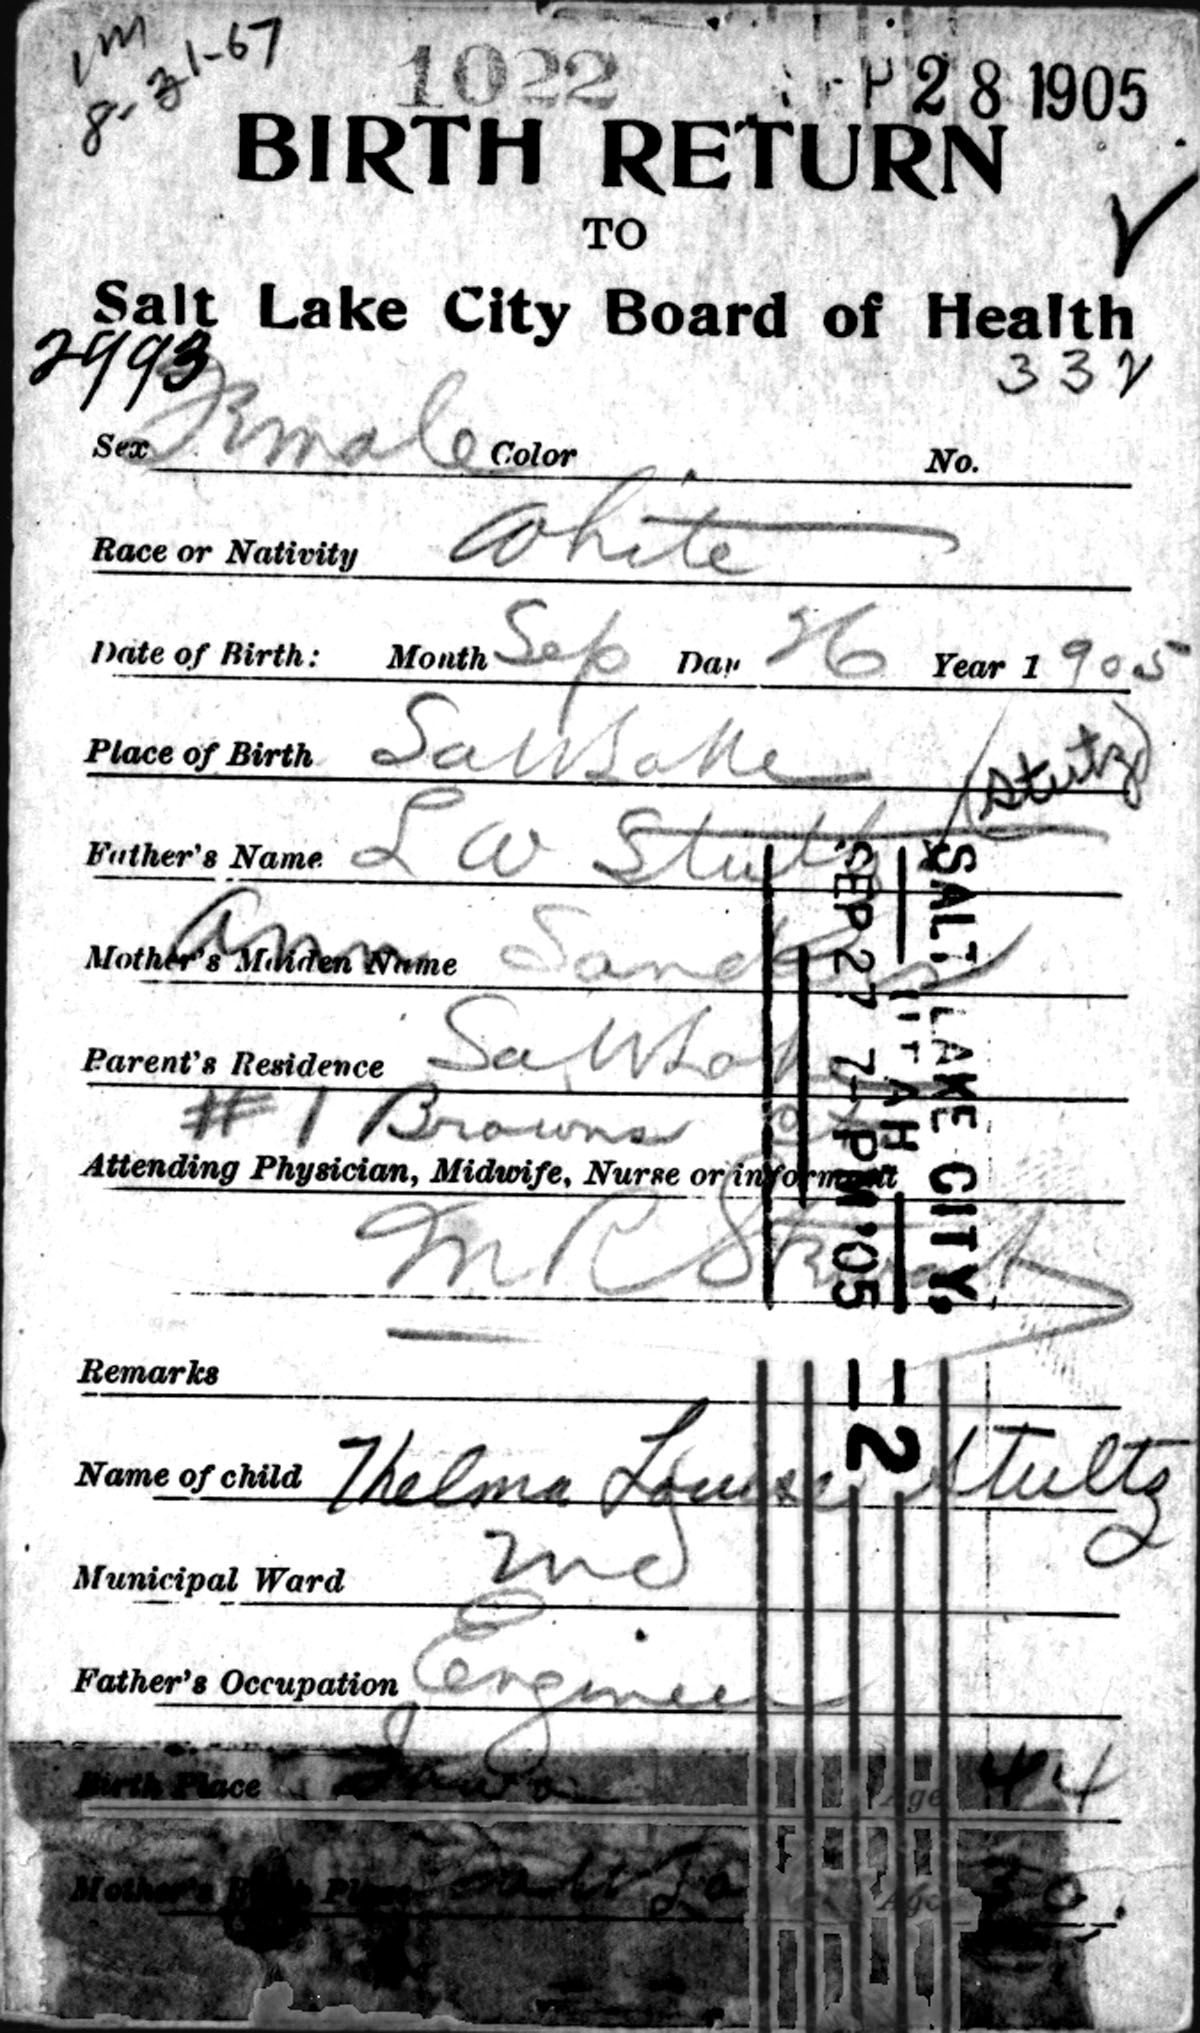 1m
8-31-67
1022
SEP 28 1905
BIRTH RETURN
TO
Salt Lake City Board of Health
2993
332
Sex Female Color No.
Race or Nativity White
Date of Birth: Month Sep Day 26 Year 1905
Place of Birth Salt Lake
(Stutz)
Father's Name L W Stultz
Mother's Maiden Name Ann Sanders
Parent's Residence Salt Lake
#1 Browns
Attending Physician, Midwife, Nurse or informant
M R Stewart
Remarks
Name of child Thelma Louise Stultz
Municipal Ward 2nd
Father's Occupation Engineer
Birth Place Iowa Age 44
Mother's Birth Place Salt La Age 30.
SALT LAKE CITY,
UTAH
SEP 27 7-PM '05
2